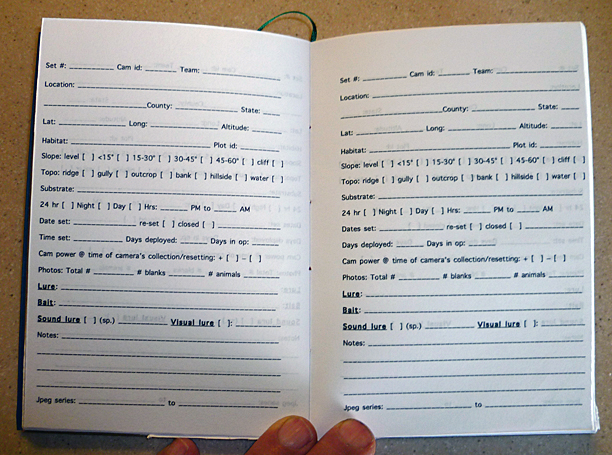 Set #: __________ Cam id: _______ Team: __________________
Location: ______________________________________________
________________________County: ____________ State: ____
Lat: ______________ Long: ____________ Altitude: ________
Habitat: _____________________________ Plot id: _________
Slope: level [ ] <15° [ ] 15-30° [ ] 30-45° [ ] 45-60° [ ] cliff [ ]
Topo: ridge [ ] gully [ ] outcrop [ ] bank [ ] hillside [ ] water [ ]
Substrate: _____________________________________________
24 hr [ ] Night [ ] Day [ ] Hrs: _______ PM to _____ AM
Date set: ____________ re-set [ ] closed [ ] ____________
Time set: ____________ Days deployed: ______ Days in op: ______
Cam power @ time of camera's collection/resetting: + [ ] – [ ]
Photos: Total # _________ # blanks ________ # animals ________
Lure: __________________________________________________
Bait: __________________________________________________
Sound lure [ ] (sp.) ____________ Visual lure [ ]: ____________
Notes: _________________________________________________
Jpeg series: ____________________ to ____________________
Set #: __________ Cam id: _______ Team: __________________
Location: ______________________________________________
________________________County: ____________ State: ____
Lat: ______________ Long: ____________ Altitude: ________
Habitat: _____________________________ Plot id: _________
Slope: level [ ] <15° [ ] 15-30° [ ] 30-45° [ ] 45-60° [ ] cliff [ ]
Topo: ridge [ ] gully [ ] outcrop [ ] bank [ ] hillside [ ] water [ ]
Substrate: _____________________________________________
24 hr [ ] Night [ ] Day [ ] Hrs: _______ PM to _____ AM
Dates set: ____________ re-set [ ] closed [ ] ____________
Days deployed: ______ Days in op: ______
Cam power @ time of camera's collection/resetting: + [ ] – [ ]
Photos: Total # _________ # blanks ________ # animals ________
Lure: __________________________________________________
Bait: __________________________________________________
Sound lure [ ] (sp.) ____________ Visual lure [ ]: ____________
Notes: _________________________________________________
Jpeg series: ____________________ to ____________________